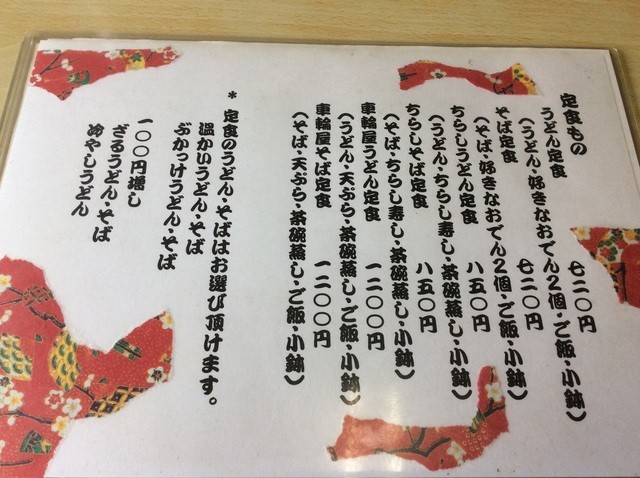 定食もの
うどん定食 七二〇円
(うどん・好きなおでん2個・ご飯・小鉢)
そば定食 七二〇円
(そば・好きなおでん2個・ご飯・小鉢)
ちらしうどん定食 八五〇円
(うどん・ちらし寿し・茶碗蒸し・小鉢)
ちらしそば定食 八五〇円
(そば・ちらし寿し・茶碗蒸し・小鉢)
車輪屋うどん定食 一二〇〇円
(うどん・天ぷら・茶碗蒸し・ご飯・小鉢)
車輪屋そば定食 一二〇〇円
(そば・天ぷら・茶碗蒸し・ご飯・小鉢)
* 定食のうどん・そばはお選び頂けます。
温かいうどん・そば
ぶかっけうどん・そば
一〇〇円増し
ざるうどん・そば
冷やしうどん